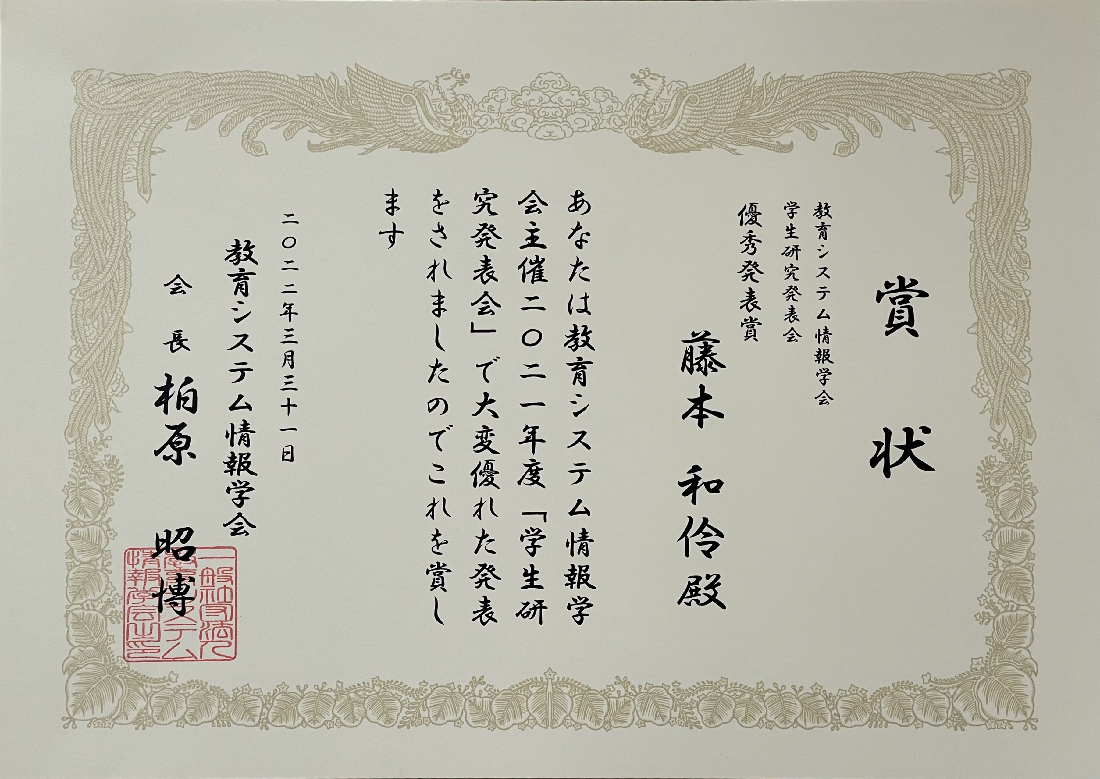 賞状
教育システム情報学会
学生研究発表会
優秀発表賞
藤本 和伶 殿
あなたは教育システム情報学
会主催二〇二一年度「学生研
究発表会」で大変優れた発表
をされましたのでこれを賞し
ます
二〇二二年三月三十一日
教育システム情報学会
会長 柏原 昭博
一般社団法人
教育システム
情報学会之印